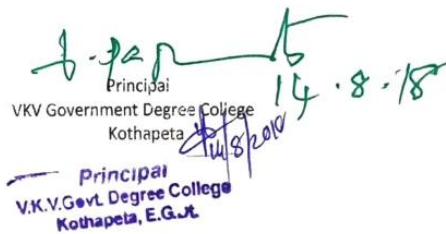 14.8.18
Principal
VKV Government Degree College
Kothapeta
14/8/2018
Principal
V.K.V.Govt. Degree College
Kothapeta, E.G.Jt.